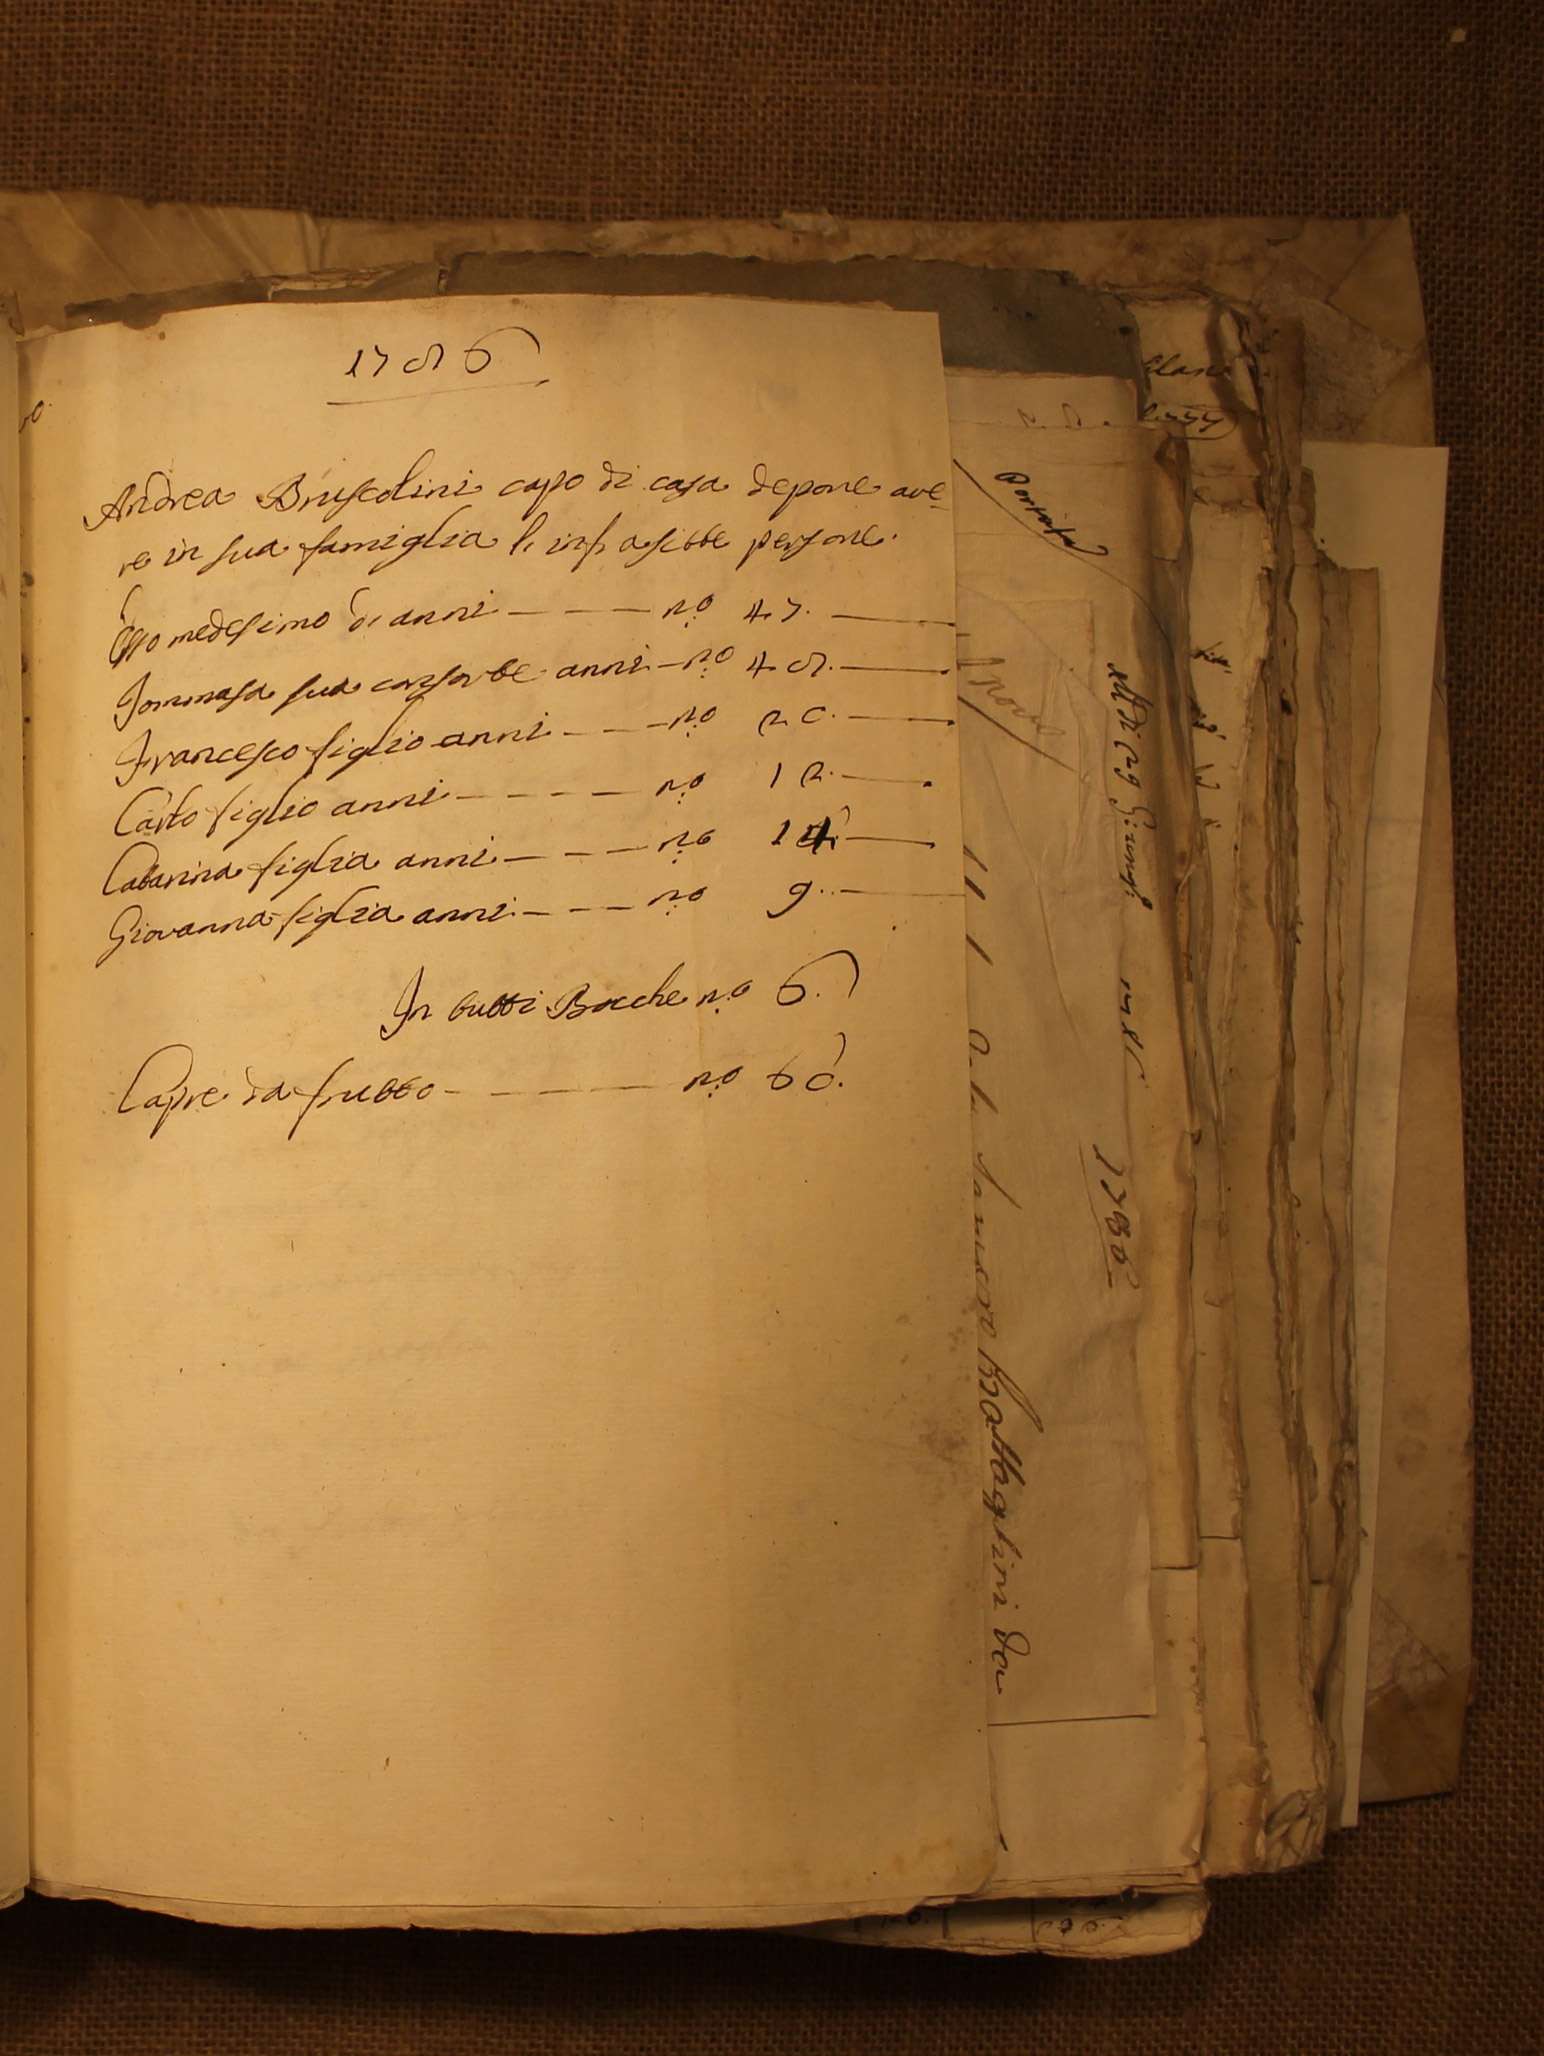 1786
Andrea Bruscolini capo di casa depone ave-
re in sua famiglia l' infrascitte persone.
Esso medesimo di anni — — — n.o 47. —
Tommasa sua consorte anni — n.o 48. —
Francesco figlio anni — — — n.o 20. —
Carlo figlio anni — — — — n.o 12. —
Catarina figlia anni — — — n.o 14. —
Giovanna figlia anni — — — n.o 9. —
In tutti Bocche n.o 6.
Capre da frutto — — — — n.o 60.
1786
Battaglini da